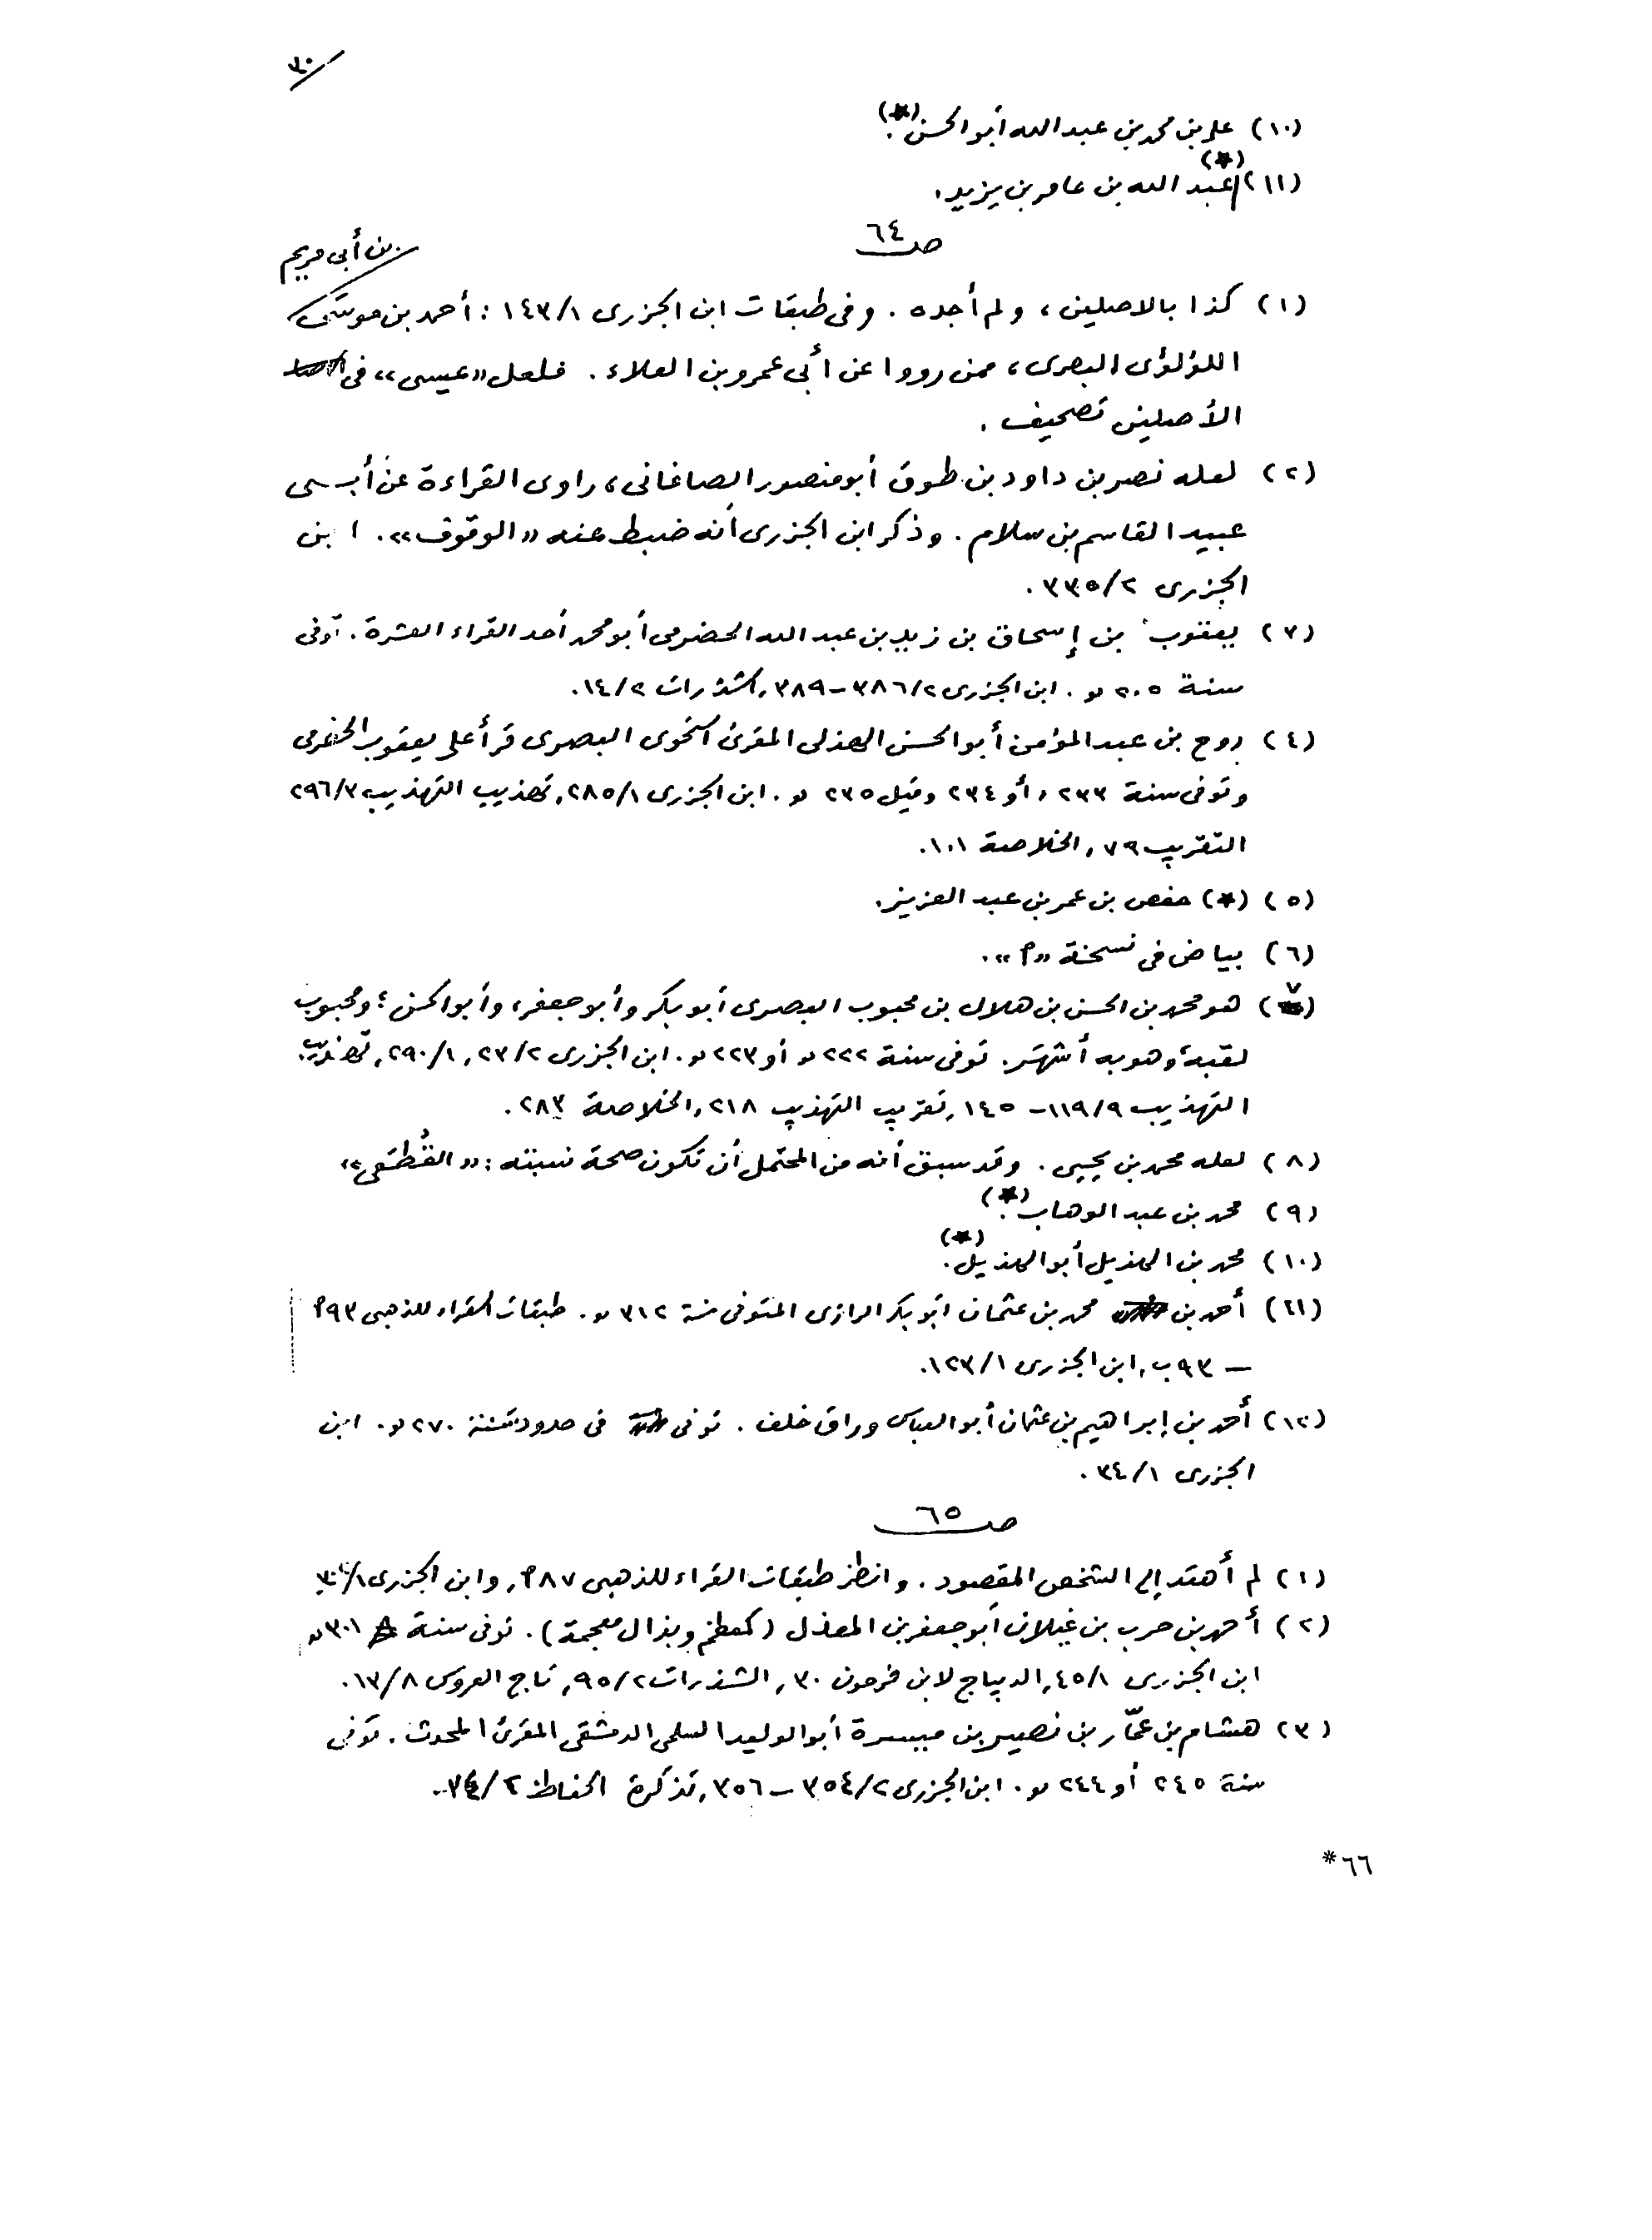 ٣٠
(١٠) علي بن محمد بن عبد الله أبو الحسن(*).
(١١) (*)عبد الله بن عامر بن يزيد.
ص ٦٤
بن أبى مريم
(١) كذا بالاصلين، ولم أجده. وفى طبقات ابن الجزرى ١٤٣/١ : أحمد بن موسى
اللؤلؤى البصرى، ممن رووا عن أبى عمرو بن العلاء. فلعل «عيسى» فى
الأصلين تصحيف.
(٢) لعله نصر بن داود بن طوق أبو منصور الصاغانى، راوى القراءة عن أبى
عبيد القاسم بن سلام. وذكر ابن الجزرى أنه ضبط عنه «الوقوف». ابن
الجزرى ٣٣٥/٢.
(٣) يعقوب بن إسحاق بن زيد بن عبد الله الحضرمى أبو محمد أحد القراء العشرة. توفى
سنة ٢٠٥ هـ. ابن الجزرى ٣٨٦/٢ – ٣٨٩, الشذرات ١٤/٢.
(٤) روح بن عبد المؤمن أبو الحسن الهذلى المقرئ النحوى البصرى قرأ على يعقوب الحضرمى
وتوفى سنة ٢٣٣, أو ٢٣٤ وقيل ٢٣٥ هـ. ابن الجزرى ٢٨٥/١, تهذيب التهذيب ٢٩٦/٣
التقريب ٧٩, الخلاصة ١٠١.
(٥) (*) حفص بن عمر بن عبد العزيز.
(٦) بياض فى نسخة «م».
(٧) هو محمد بن الحسن بن هلال بن محبوب البصرى أبو بكر وأبو جعفر، وأبو الحسن؛ ومحبوب
لقبه، وهو به أشهر. توفى سنة ٢٢٢ هـ أو ٢٢٣ هـ. ابن الجزرى ٢٣/٢, ٢٩٠/١, تهذيب
التهذيب ١١٩/٩ – ١٤٥, تقريب التهذيب ٢١٨, الخلاصة ٢٨٣.
(٨) لعله محمد بن يحيى. وقد سبق أنه من المحتمل أن تكون صحة نسبته : «القُطَعى»
(٩) محمد بن عبد الوهاب(*).
(١٠) محمد بن الهذيل أبو الهذيل(*).
(١١) أحمد بن محمد بن عثمان أبو بكر الرازى المتوفى سنة ٣١٢ هـ. طبقات القراء للذهبى ٩٣م
– ٩٣ ب, ابن الجزرى ١٢٣/١.
(١٢) أحمد بن إبراهيم بن عثمان أبو العباس وراق خلف. توفى فى حدود سنة ٢٧٠ هـ. ابن
الجزرى ٣٤/١.
ص ٦٥
(١) لم أهتد إلى الشخص المقصود. وانظر طبقات القراء للذهبى ٨٧م, وابن الجزرى
(٢) أحمد بن حرب بن غيلان أبو جعفر بن المعذل (كمعظم وبذال معجمة). توفى سنة ٣٠١ هـ
ابن الجزرى ٤٥/١, الديباج لابن فرحون ٣٠, الشذرات ٩٥/٢, تاج العروس ١٣/٨.
(٣) هشام بن عمّار بن نصير بن ميسرة أبو الوليد السلمى الدمشقى المقرئ المحدث. توفى
سنة ٢٤٥ أو ٢٤٤ هـ. ابن الجزرى ٣٥٤/٢ – ٣٥٦, تذكرة الحفاظ
٦٦*